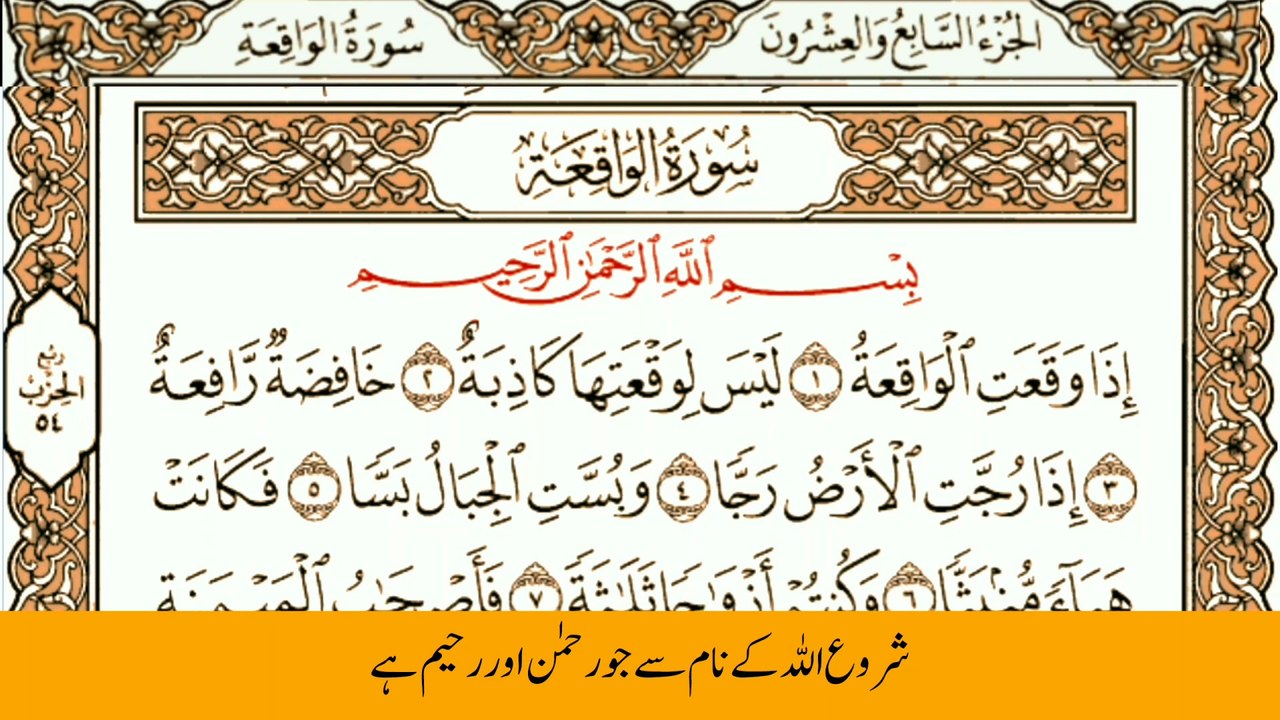 الجُزْءُ السَّابِعُ وَالعِشْرُونَ
سُورَةُ الوَاقِعَةِ
سُورَةُ الوَاقِعَةِ
بِسْمِ ٱللَّهِ ٱلرَّحْمَٰنِ ٱلرَّحِيمِ
إِذَا وَقَعَتِ ٱلْوَاقِعَةُ ١ لَيْسَ لِوَقْعَتِهَا كَاذِبَةٌ ٢ خَافِضَةٌ رَّافِعَةٌ
٣ إِذَا رُجَّتِ ٱلْأَرْضُ رَجًّا ٤ وَبُسَّتِ ٱلْجِبَالُ بَسًّا ٥ فَكَانَتْ
هَبَآءً مُّنۢبَثًّا ٦ وَكُنتُمْ أَزْوَٰجًا ثَلَٰثَةً ٧ فَأَصْحَٰبُ ٱلْمَيْمَنَةِ
ربع
الحزب
٥٤
شروع اللہ کے نام سے جو رحمٰن اور رحیم ہے